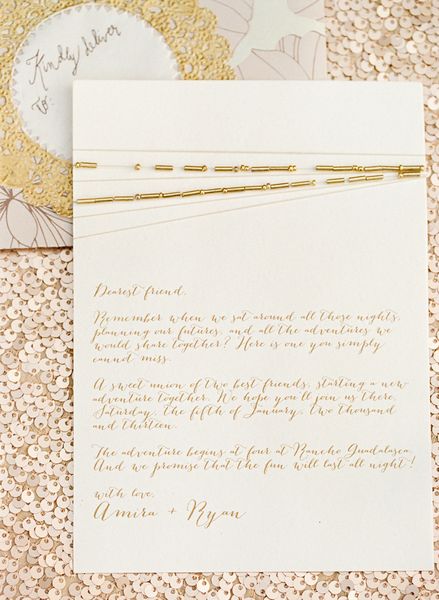 Kindly deliver
to:
Dearest friend,
Remember when we sat around all those nights,
planning our futures, and all the adventures we
would share together? Here is one you simply
cannot miss.
A sweet union of two best friends, starting a new
adventure together. We hope you'll join us there,
Saturday, the fifth of January, two thousand
and thirteen.
The adventure begins at four at Rancho Guadalasca.
And we promise that the fun will last all night!
with love,
Amira + Ryan